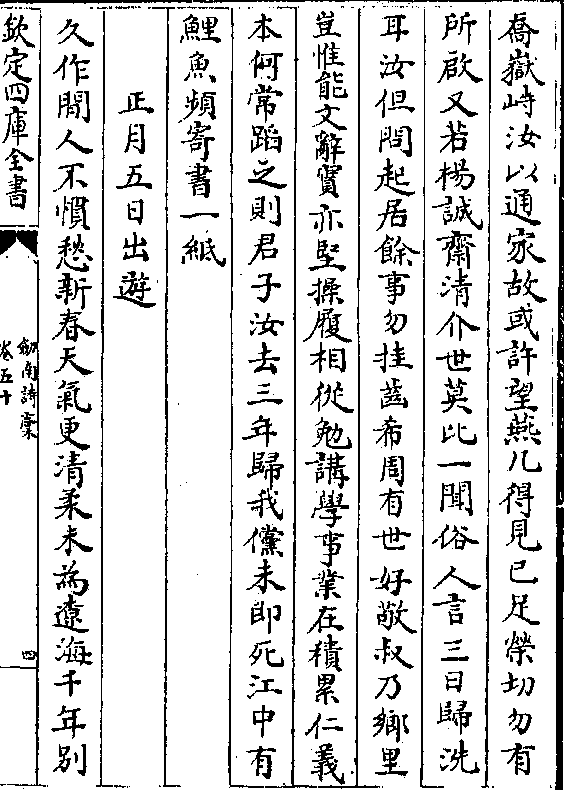 喬嶽峙汝以通家故或許望燕几得見已足榮切勿有
所啟又若楊誠齋清介世莫比一聞俗人言三日歸洗
耳汝但問起居餘事勿挂齒希周有世好敬叔乃鄉里
豈惟能文辭實亦堅操履相從勉講學事業在積累仁義
本何常蹈之則君子汝去三年歸我儻未即死江中有
鯉魚頻寄書一紙
正月五日出遊
久作閒人不慣愁新春天氣更清柔未為遼海千年別
欽定四庫全書
劍南詩稾
卷五十
四